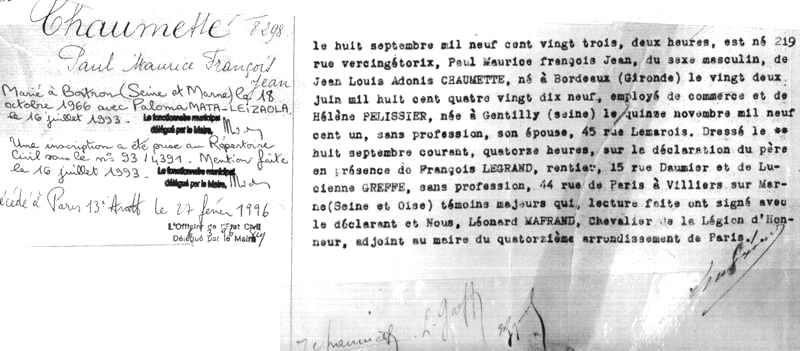 Chaumette 8298
Paul Maurice François
Jean
Marié à Bostron (Seine et Marne) le 18
octobre 1966 avec Paloma MATA-LEIZAOLA
le 16 juillet 1993.
Le fonctionnaire municipal
délégué par le Maire,
Une inscription a été prise au Répertoire
Civil sous le n° 93/4391. Mention faite
le 16 juillet 1993.
Le fonctionnaire municipal
délégué par le Maire,
écédé à Paris 13e Arrdt le 27 février 1996
L'Officier de l'Etat Civil
Délégué par le Maire
le huit septembre mil neuf cent vingt trois, deux heures, est né 219
rue vercingétorix, Paul Maurice françois Jean, du sexe masculin, de
Jean Louis Adonis CHAUMETTE, né à Bordeaux (Gironde) le vingt deux
juin mil huit cent quatre vingt dix neuf, employé de commerce et de
Hélène PELISSIER, née à Gentilly (seine) le quinze novembre mil neuf
cent un, sans profession, son épouse, 45 rue Lemarois. Dressé le
huit septembre courant, quatorze heures, sur la déclaration du père
en présence de François LEGRAND, rentier, 15 rue Daumier et de Lu-
cienne GREFFE, sans profession, 44 rue de Paris à Villiers sur Mar-
ne(Seine et Oise) témoins majeurs qui, lecture faite ont signé avec
le déclarant et Nous, Léonard MAFRAND, Chevalier de la Légion d'Hon-
neur, adjoint au maire du quatorzième arrondissement de Paris.